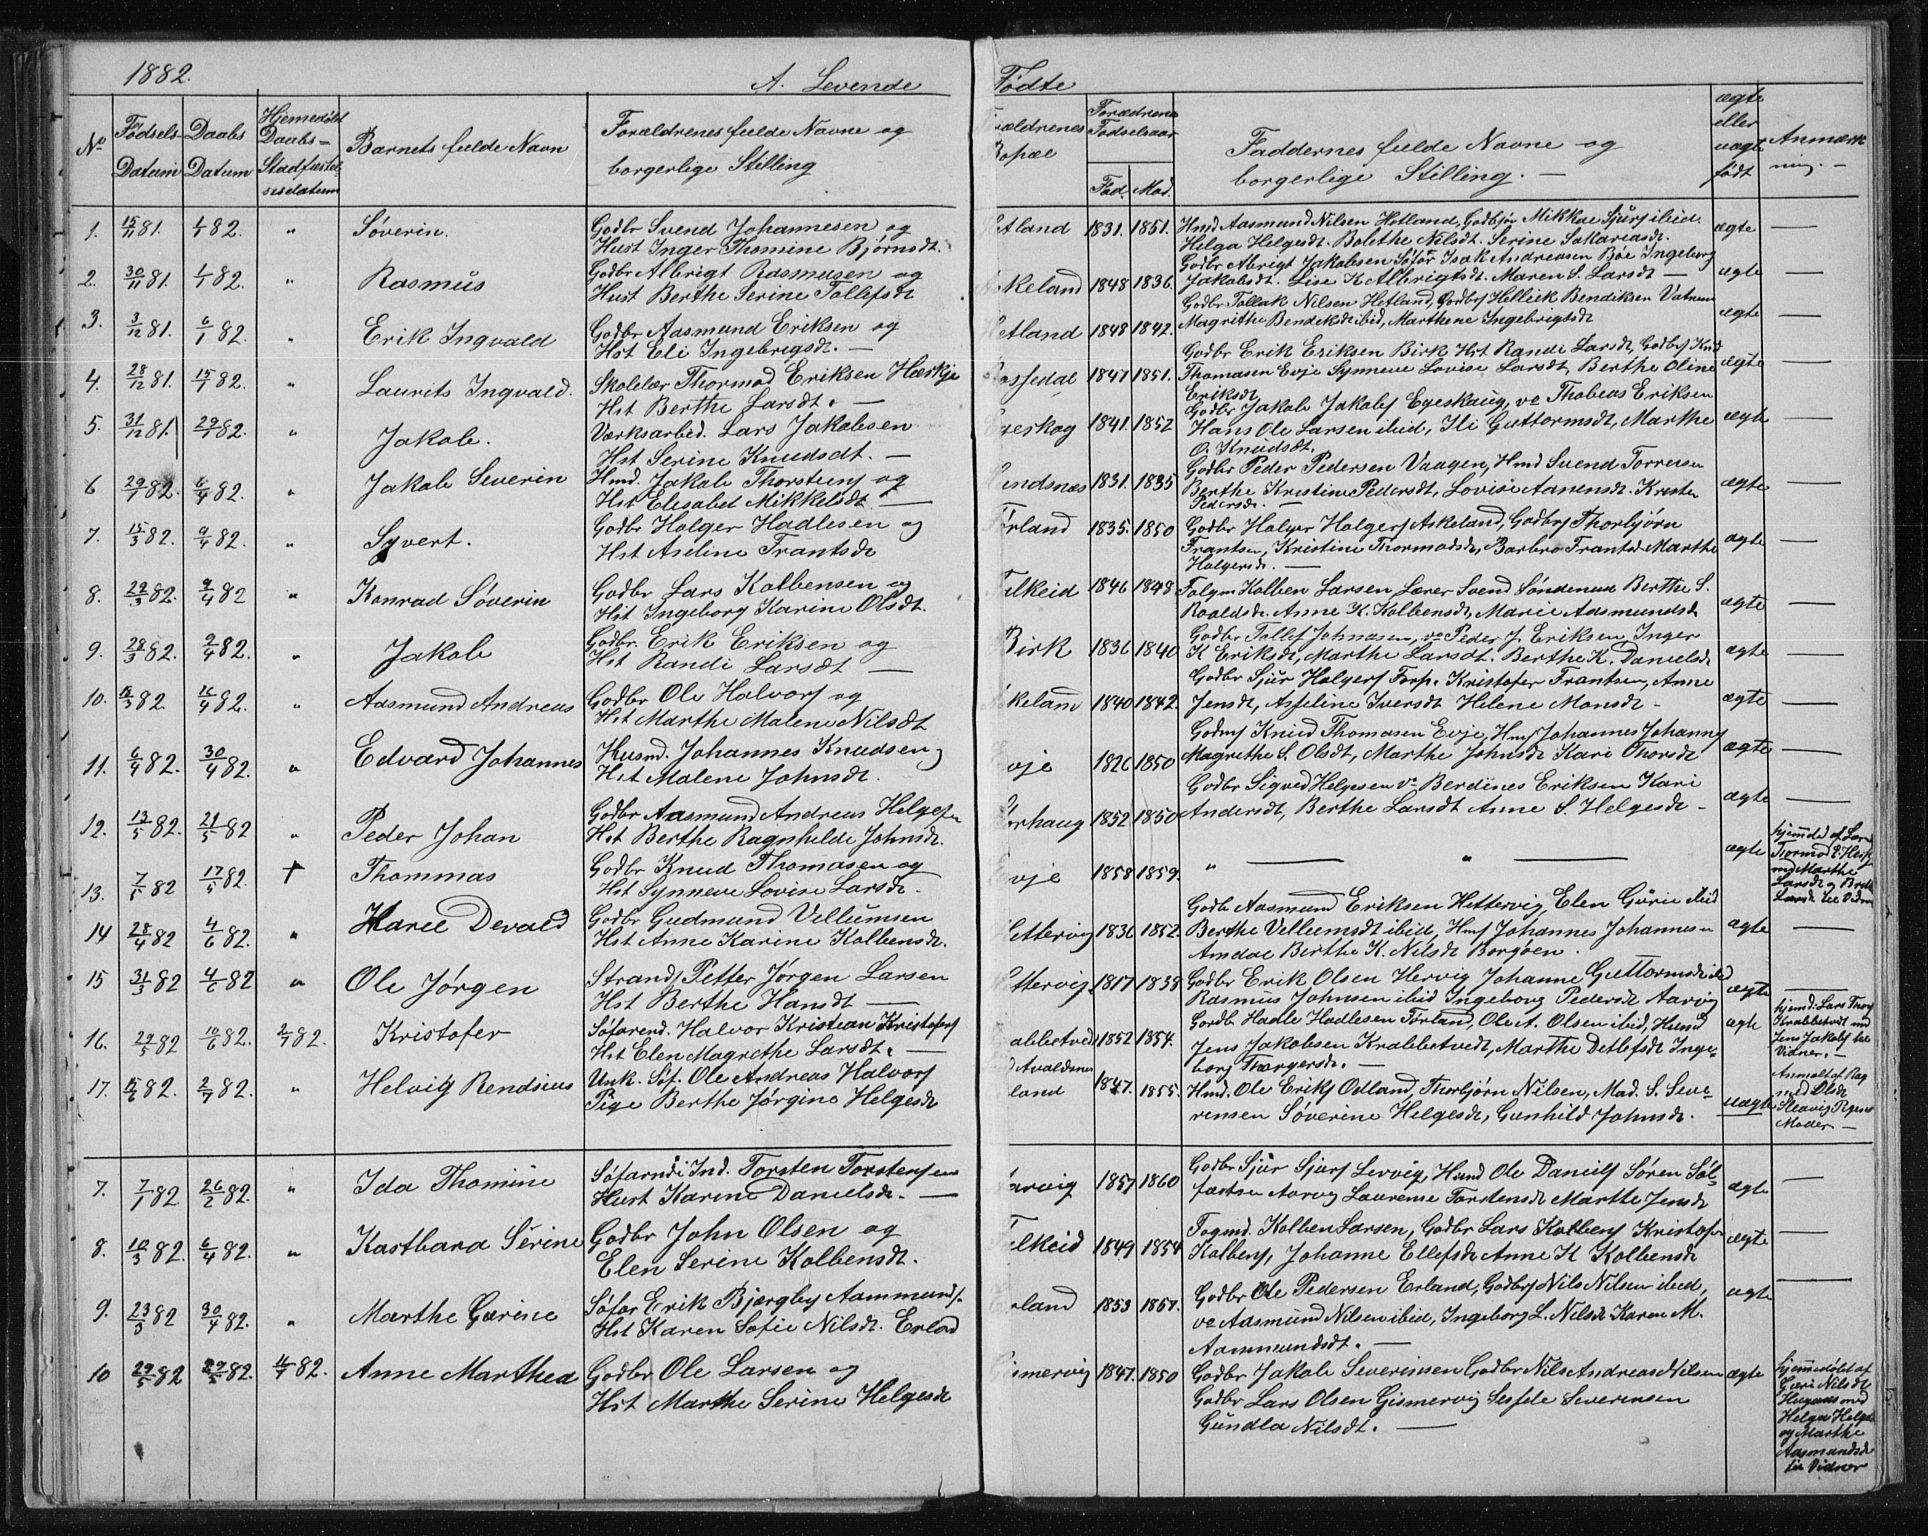 1882. A. Levende Fødte
No Fødsels Datum Daabs Datum Hjemedøbt Daabs= Stadfæstel sesdatum Barnets fulde Navn Forældrenes fulde Navne og borgerlige Stilling Bopæl Forældrenes Fødselsaar Fad. Mod. Faddernes fulde Navne og borgerlige Stilling. — ægte eller uægte født Anmærk ning. —
1. 15/11 81. 1/1 82. " Søverin. Godbr Svend Johannesen og Hetland 1831. 1851. Hmd Aasmund Nilsen Hetland, Godbjør Mikkal Sjurs ibid. ægte —
Hust Inger Thomine Bjørnsdt. Helga Helgesdt. Bolethe Nilsdt. Serine Sakariasdt.
2. 30/11 81. 1/1 82. " Rasmus Godbr Albrigt Rasmusen og Askeland 1848 1836. Godbr Abrigt Jakobsen Søfar Isak Andreasen Bøe Ingeborg ægte —
Hust Berthe Serine Tollefsdt Jakobsdt. Lise K Albrigtsdt. Maren S. Larsdt —
3. 3/12 81. 6/1 82. " Erik Ingvald Godbr Aasmund Eriksen og Hetland 1848 1842. Godbr Tollak Nilsen Hetland, Godbrs Helliek Bendiksen Vatnum ægte —
Hst Eli Ingebrigsdt. — Magrithe Bendeksdt ibid, Marthene Ingebrigsdt
4. 28/12 81. 15/1 82. " Laurits Ingvald. Skolelær Thormod Eriksen Hæskje 1847 1851. Godbr Erik Eriksen Birk Hst Randi Larsdt, Godbrs Knud ægte —
Hst Berthe Larsdt. — Thomasen Evje Synneve Lovise Larsdt, Berthe Oline
Eriksdt
5. 31/12 81. 29/1 82. " Jakob. Værksarbid. Lars Jakobsen Egeskog 1841. 1852 Godbr Jakob Jakobs Egeskaug, ve Thobias Eriksen ægte —
Hst Serine Knudsdt. — Hans Ole Larsen ibid, Ili Guttormsdt, Marthe
O. Knudsdt.
6 29/1 82. 6/4 82. " Jakob Severin Hmd. Jakob Thorstens og 1831. 1835 Godbr Peder Pedersen Vaagen, Hmd Svend Torresen ægte —
Hst Elisabet Mikkelsdt — Berthe Kristine Pedersdt, Lovise Aanensdt. Kristen
Pedersdt. —
7. 15/3 82. 9/4 82. " Syvert. Godbr Holger Hadlesen og Førland 1835. 1850 Godbr Holger Holgers Askeland, Godbrs Thorbjørn ægte —
Hst Aseline Frantsdt Frantsen, Kristine Thormodsdt, Barbro Frantsdt Marthe
Holgersdt. —
8. 22/3 82. 9/4 82 " Konrad Søverin Godbr Lars Kolbensen og 1846 1848 Folgm Kolben Larsen Lærer Svend Søndenaa Berthe S. ægte —
Hst Ingeborg Karine Olsdt. Roaldsdt. Anne K. Kolbensdt, Marie Aasmundsdt
9. 28/3 82. 9/4 82. " Jakob Godbr. Erik Eriksen og Birk 1836 1840 Godbr Tollef Johnasen, ve Peder J. Eriksen, Inger ægte —
Hst Randi Larsdt — K Eriksdt, Marthe Larsdt. Berthe K. Danielsdt
10. 15/3 82. 16/4 82. " Aasmund Andreas Godbr Ole Halvors og 1840 1842. Godbr Sjur Holgers Førp. Kristofer Frantsen, Anne ægte —
Hst Marthe Malene Nilsdt Jensdt, Asseline Iversdt Helene Monsdt —
11. 6/4 82. 30/4 82. " Edvard Johannes Husmd. Johannes Knudsen og Evje 1826 1850 Godms Knud Thomasen Evje, Hms Johannes Johanns ægte —
Hst Malene Johnsdt. Magrethe S. Olsdt, Marthe Johnsdt Kari Thorsdt
12. 13/5 82. 21/5 82 " Peder Johan Godbr Aasmund Andreas Helgesen 1852 1850 Godbr Sigved Helgesen ve Berdines Eriksen Kari ægte —
Hst Berthe Ragnhilde Johnsdt. Andersdt, Berthe Larsdt Anne S. Helgesdt —
13. 7/5 82 17/5 82. † Thommas Godbr Knud Thomasen og Evje 1858 1859. " — " — ægte hjemdø. af Lær Tormod E. Hæsk med Marthe Larsdt og Brithe Larsdt til Vidner
Hst Synneve Lovise Larsdt.
14 28/4 82 4/6 82. " Karel Devald Godbr Gudmund Vellumsen Hettervig 1836 1852. Godb Aasmund Eriksen Hettervig, Elen Gurie ibid ægte —
Hst Anne Karine Kolbensdt. Berthe Vellumsdt ibid, Hms Johannes Johannesen
Amdal Berthe K. Nilsdt Borgøen.
15 31/3 82 4/6 82 " Ole Jørgen Strands Petter Jørgen Larsen Hettervig 1817 1839 Godbr Erik Olsen Hervig Johanne Guttormsdt ibid ægte —
Hst Berthe Hansdt — Rasmus Johnsen ibid Ingeborg Pedersdt Aarvig
16. 29/5 82 10/6 82. 2/7 82. Kristofer Søfarend. Halvor Kristian Kristofers 1852 1854. Gordb Hadle Hadlesen Førland, Ole A. Olsen ibid, Husmd ægte hjemd: Lars Thor Krabbetvdt med Jens Jakobs til Vidner. —
Hst Elen Magrethe Larsdt. — Jens Jakobsen Krabbetvedt, Marthe Detlefsdt Inge-
borg Thorgersdt. —
17. 15/6 82. 2/7 82. " Helvig Rendsius Unk. Søf. Ole Andreas Halvors 1847. 1855. Hmd. Ole Eriks Odland, Thorbjørn Nilsen, Mad. S. Seve- uægte Anmeldt af Rag
Pige Berthe Jørgine Helgesdt rensen Søverine Helgesdt, Gunhild Johnsdt. Moder —
7. 7/1 82 26/2 82. " Ida Thomine Søfarndi Ind. Torsten Torstensen 1857 1860 Godbr Sjur Sjurs Lervig, Hmd Ole Daniels Søren Søl- ægte —
Hust Karine Danielsdt. — fastsen Aarvig Laurense Torstensdt Marthe Jensdt
8. 10/3 82. 6/4 82. " Kastbara Serine Godbr John Olsen og 1849 1854 Fogmd. Kolben Larsen, Godbr Lars Kolbens Kristofer ægte —
Elen Serine Kolbensdt. Kolbens, Johanne Ellefsdt Anne K Kolbensdt
9. 23/3 82 30/4 82. " Marthe Garine Søfar Erik Bjærgby Aammunds. Erland 1853 1857. Godbr Ole Pedersen Erland, Godbrs Nils Nilsen ibid, ægte —
Hst Karen Sofie Nilsdt. Erlad ve Aasmund Nilsen ibid, Ingeborg L. Nilsdt Karen M.
Aammundsdt. —
10 29/5 82 29/5 82. 16/7 82. Anne Marthea Godbr Ole Larsen og Gismervig 1847. 1850 Godbr Jakob Severinsen Godbr Nils Andreas Nilsen ægte hjemmedøbt af Guri Nilsdt med Helga Helgesdt og Marthe Aasmundsdt til Vidner
Hst Marthe Serine Helgesdt Godbr Lars Olsen Gismervig Sesfele Severinsen
Gundla Nilsdt. —